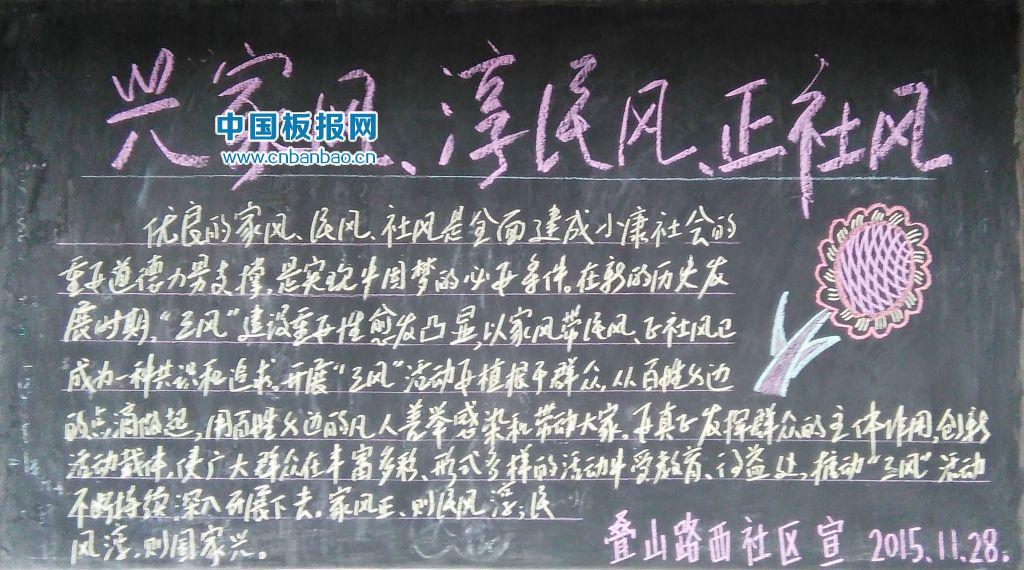 兴家风、淳民风、正社风
中国板报网
www.cnbanbao.cn
优良的家风、民风、社风是全面建成小康社会的
重要道德力量支撑,是实现中国梦的必要条件。在新的历史发
展时期,“三风”建设重要性愈发凸显,以家风带民风、正社风已
成为一种共识和追求。开展“三风”活动要植根于群众,从百姓身边
的点滴做起,用百姓身边的凡人善举感染和带动大家。要真正发挥群众的主体作用,创新
活动载体,使广大群众在丰富多彩、形式多样的活动中受教育、得益处,推动“三风”活动
不断持续深入开展下去。家风正,则民风淳;民
风淳,则国家兴。
叠山路西社区宣 2015.11.28.